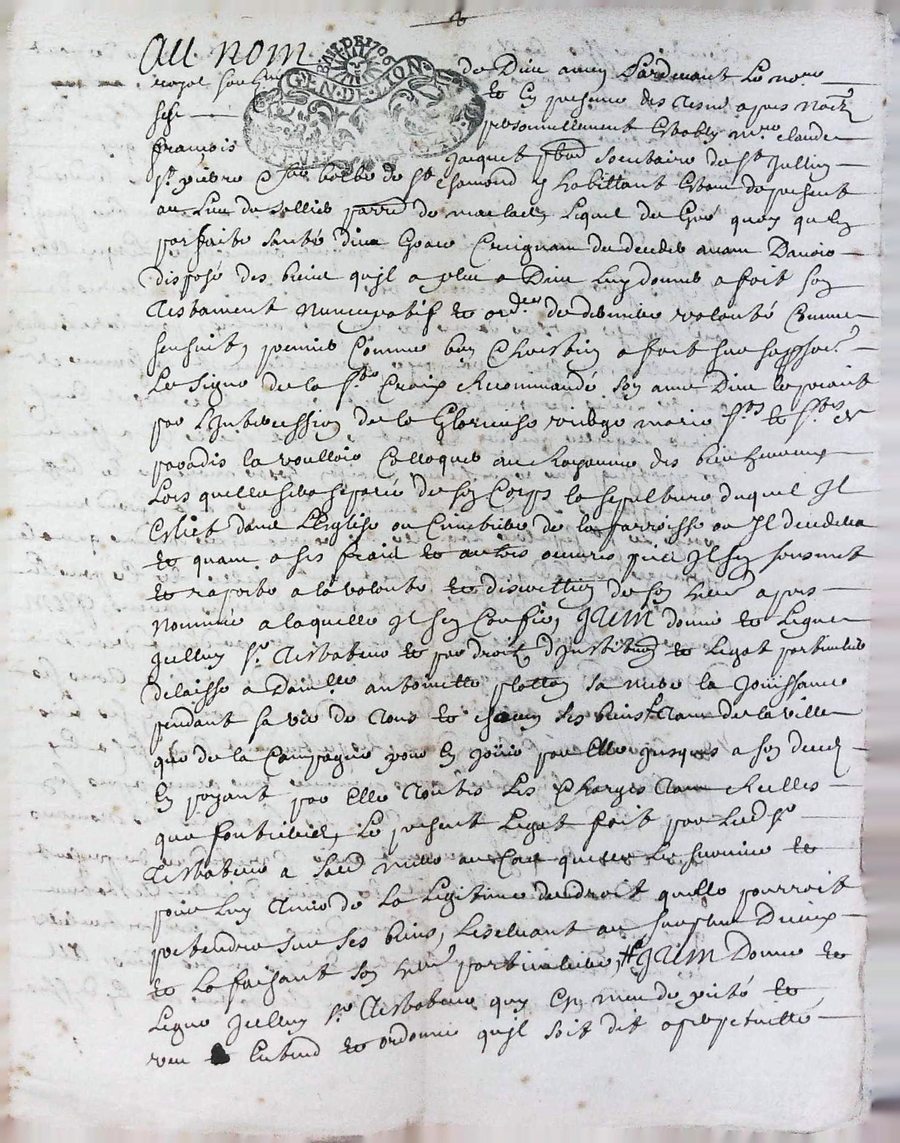 au nom de Dieu amen Pardevant Le nore
royal soubne et en presence des tesm. apres
personnellement Estably mre claude
françois Jacquet pbre societaire de St Jullin
St pierre Et barbe de St Chamond y habittant Estant de present
au Lieu de Sellieu parre de Lequel de Gré quoy qu'en
parfaite santé Dieu Grace Craignant du deceds avant Davoir
disposé des biens qu'jl a pleu a Dieu Luy donner a fait son
testament Nuncupatif et ordre de derniere volonté Comme
sensuit, premier Comme bon Chrestien a fait sur sa
Le Signe de la Ste Croix Recommandé son ame a Dieu Le priant
par L'Intercession de la Glorieuse vierge marie Sts et Stes de
paradis la voulloir Colloquer au Royaume des bienheureux
Lors quelle sera separée de son Corps la sepulture duquel Il
Eslict dans L'Eglise ou Cimetiere de la parroisse ou Il decedera
et quant a ses frais et autres œuvres pies Il s'en soubmet
et raporte a la volonté et discrettion de son here apres
Nommée a laquelle Il s'en Confie, JtEM donne et Legue
Jcelluy Sr testateur et par droit d'Jnstitution et Legat particulier
delaisse a Daille antoinette plotton sa mere la Joüissance
pendant sa vie de tous et chacun ses biens tant de la ville
que de la Campagne pour En Joüir par Elle jusques a son deceds
En payant par Elle toutes Les Charges tant Reelles
que fonciere, Le present Legat fait par Led Sr
testateur a sad mere au Cas quelle Le survive et
pour Luy tenir de La Legitime de droit quelle pourroit
pretendre sur ses biens, L'excluant au surplus Diceux
et La faisant son here particuliere, JtEM Donne et
Legue Jcelluy Sr testateur quy En meu de pieté et
veu Entend et ordonne qu'jl soit dit a perpetuitté
BAIL DE 1706
GEN. DE LION